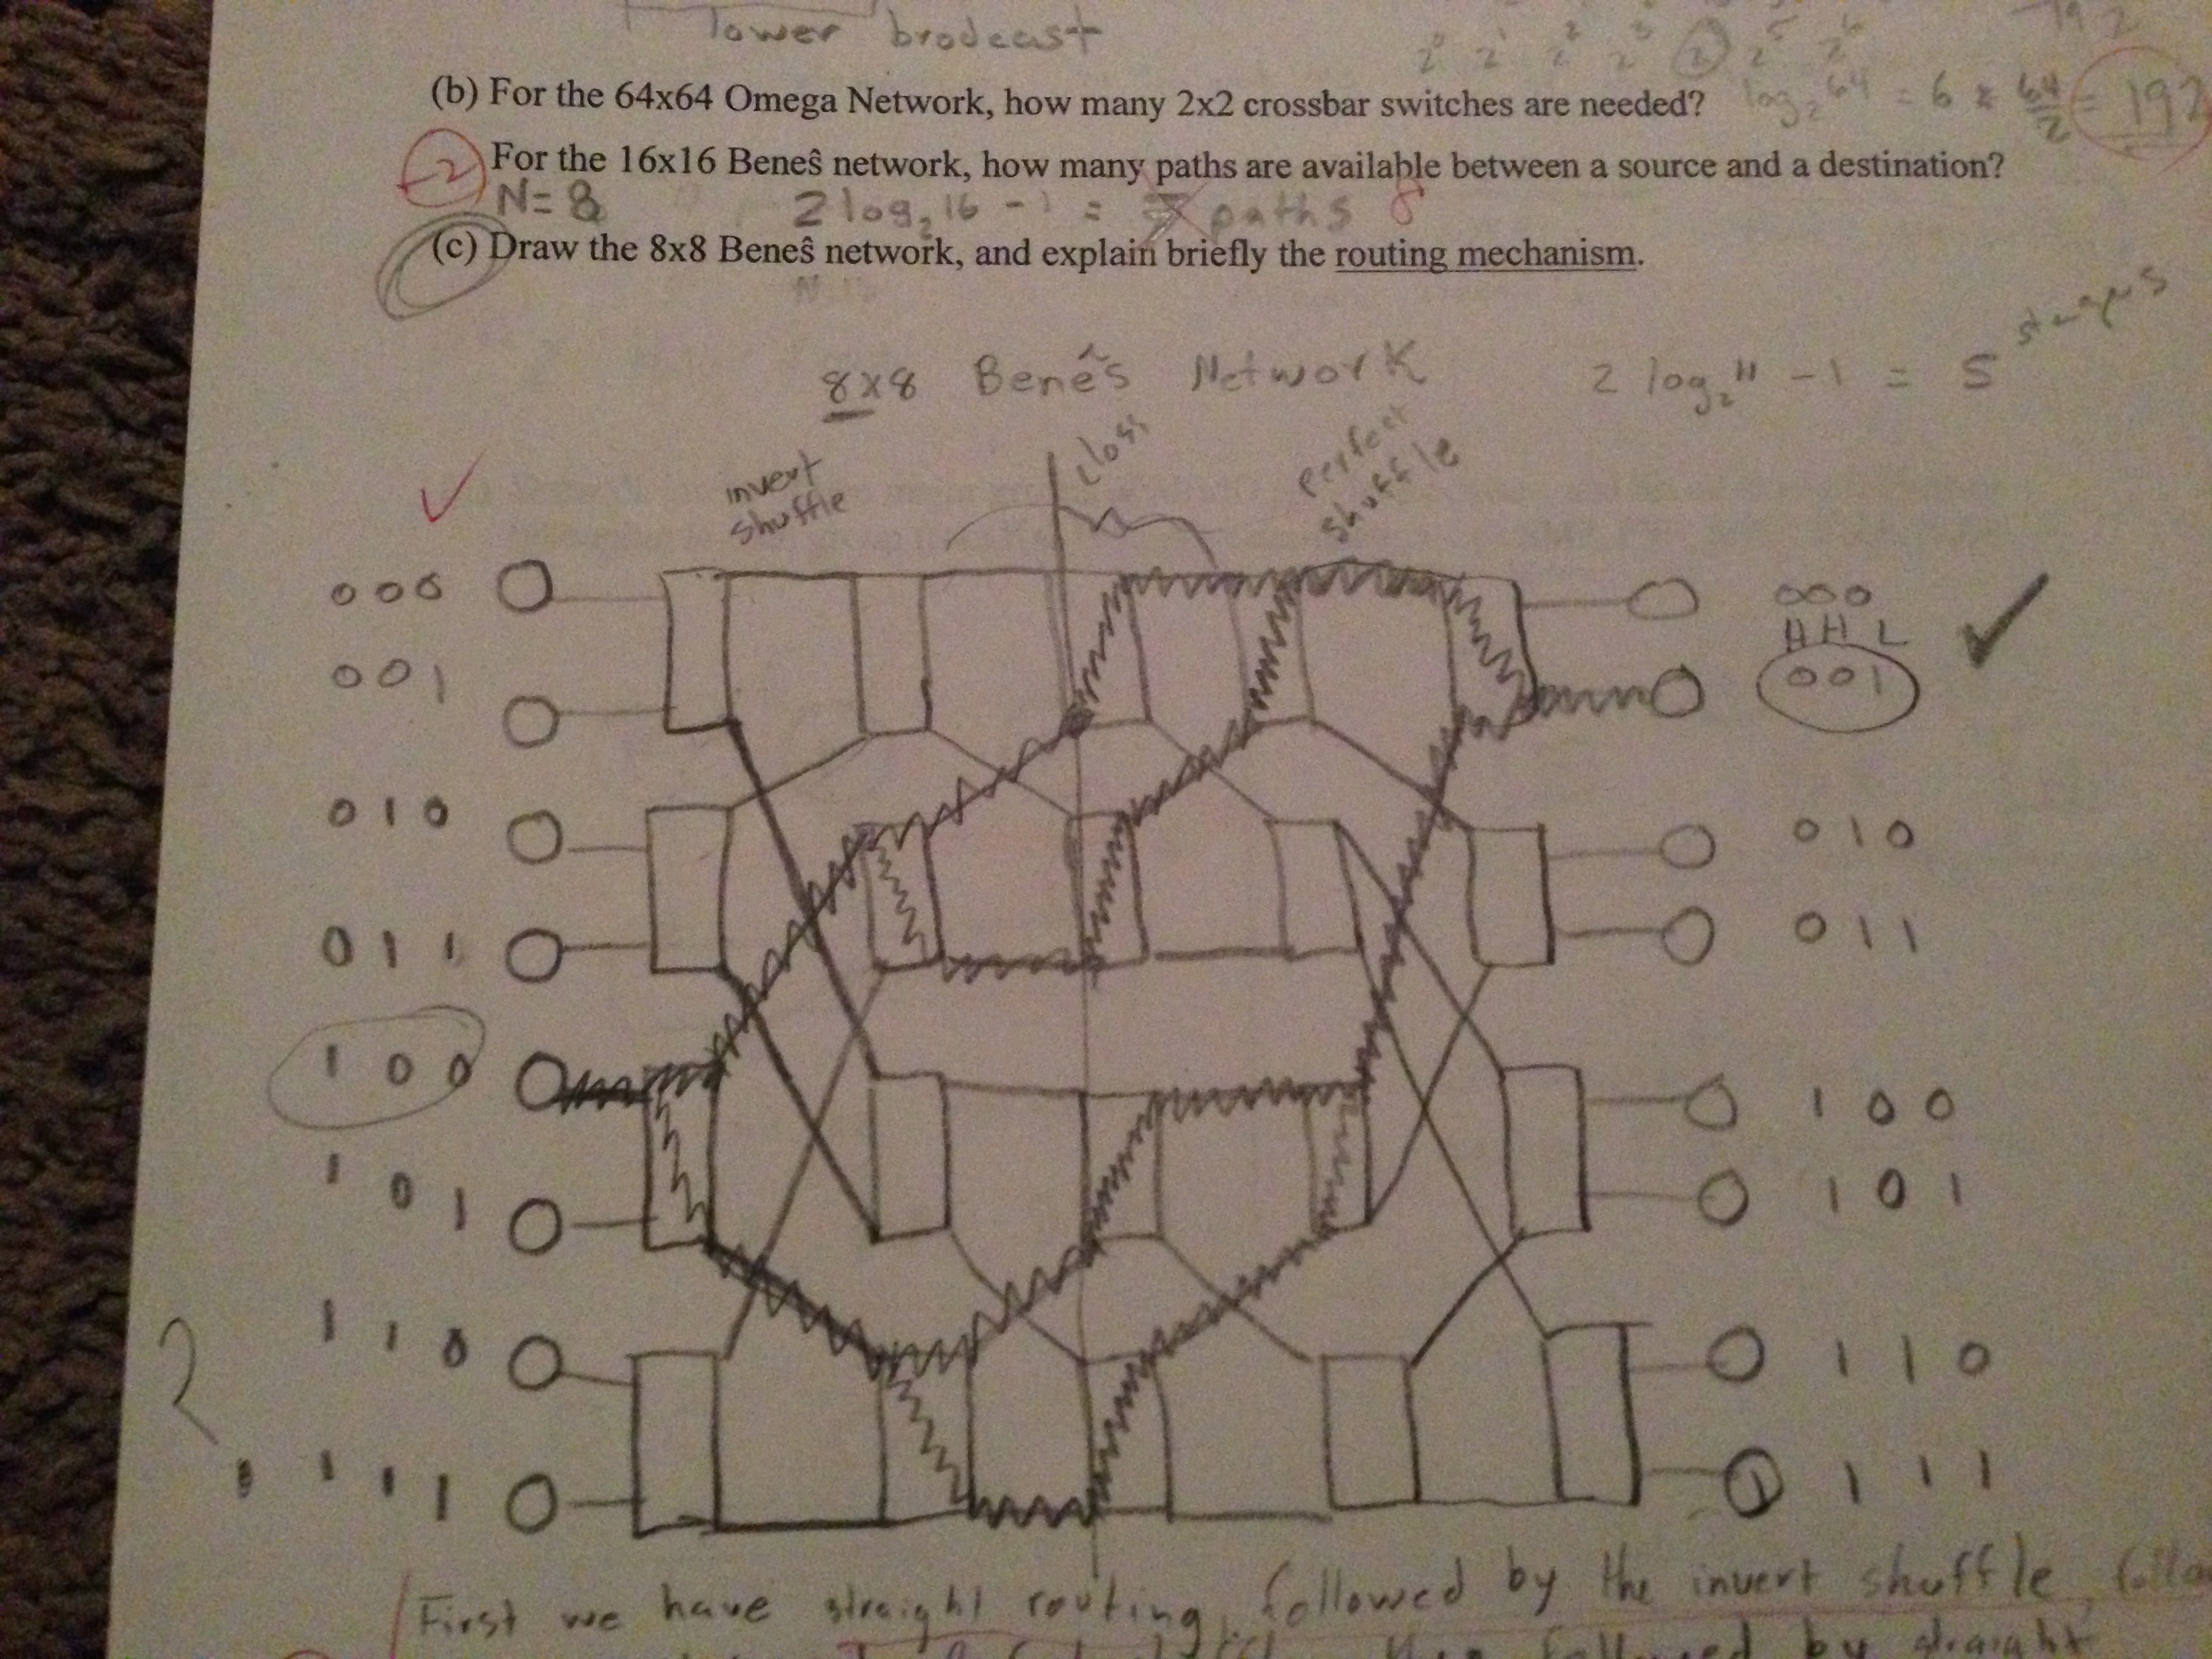 lower brodcast
2⁰ 2¹ 2² 2³ 2⁵ 2⁶
192
(b) For the 64x64 Omega Network, how many 2x2 crossbar switches are needed?
log₂ 64 = 6 x 64/2 = 192
-2 For the 16x16 Beneš network, how many paths are available between a source and a destination?
N=8 2 log₂ 16 - 1 = 7 paths 8
(c) Draw the 8x8 Beneš network, and explain briefly the routing mechanism.
8x8 Benês Network 2 log₂ⁿ - 1 = 5 stages
invert shuffle
perfect shuffle
000 000
HHL
001 001
010 010
011 011
100 100
101 101
110 110
111 111
2
First we have straight routing followed by the invert shuffle
followed by straight